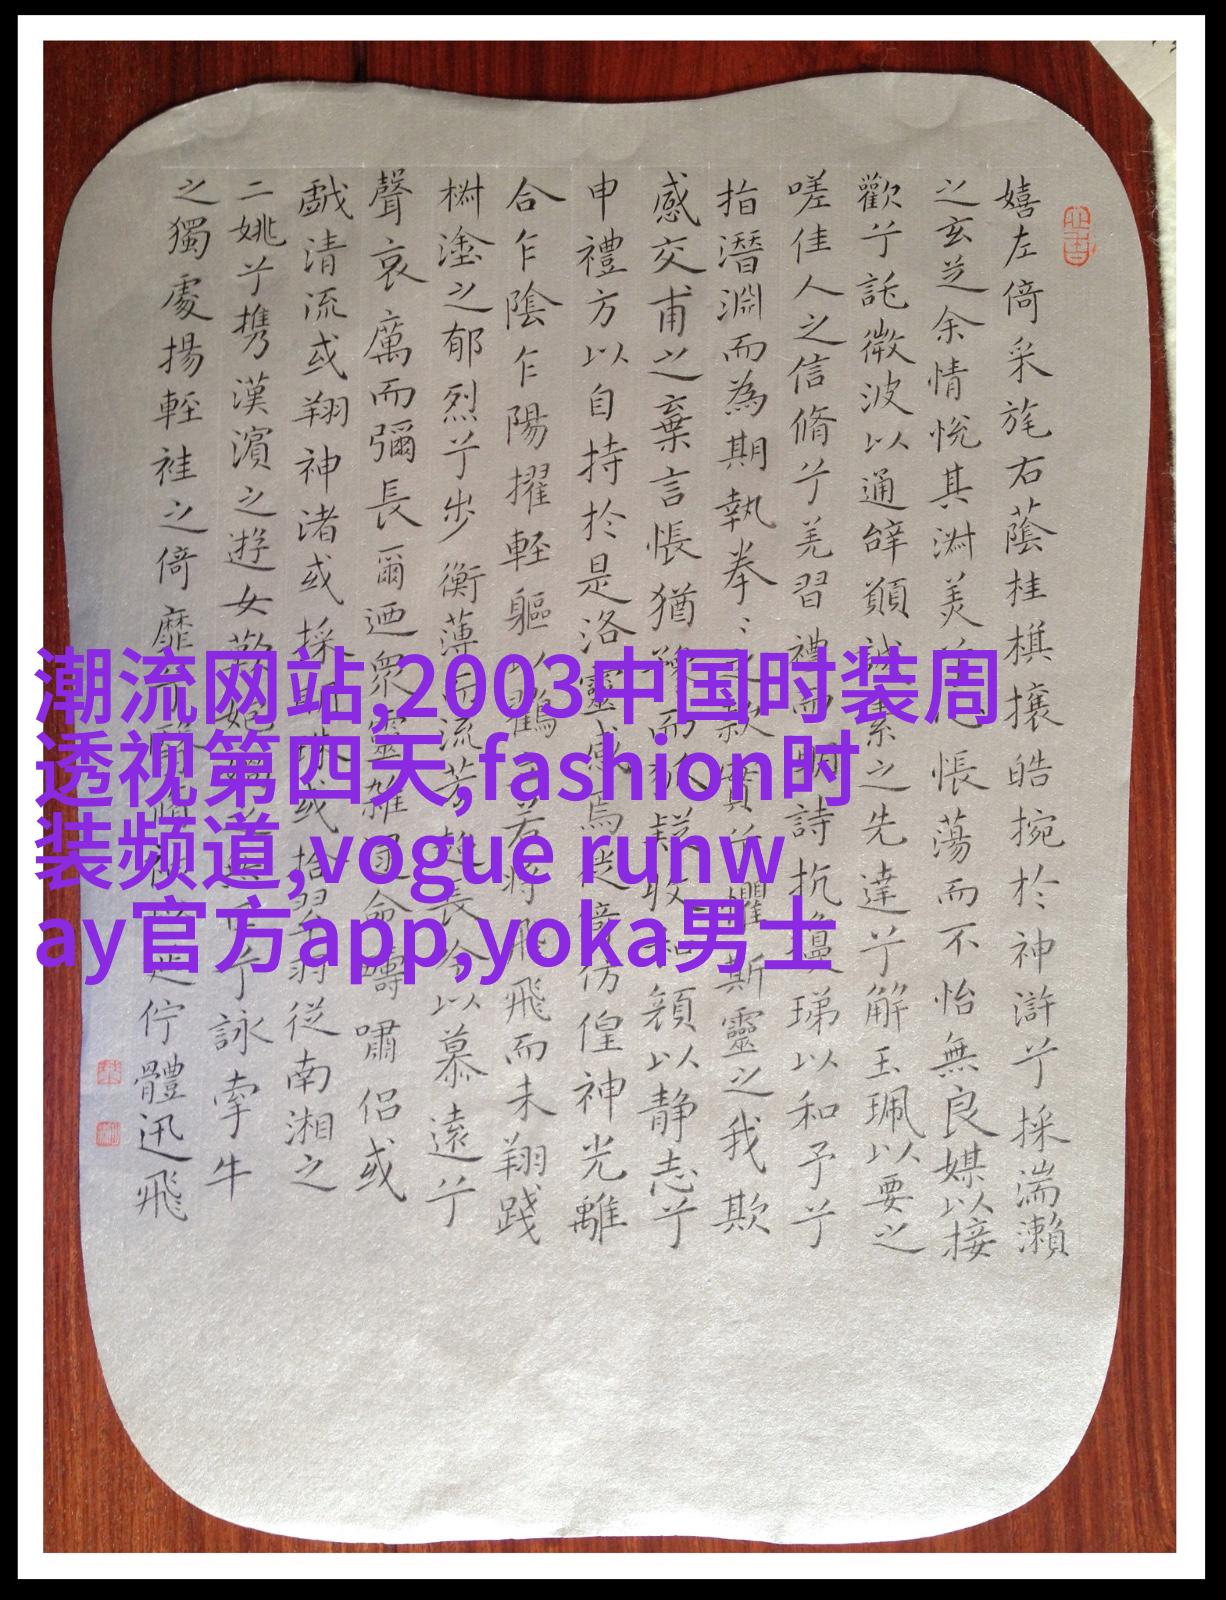 嬉左倚采旄右蔭桂棋攘皓捥於神滸兮採湍瀨
之玄芝余情悅其淑美兮心悵蕩而不怡無良媒以接
歡兮託微波以通辭願誠素之先達兮解玉珮以要之
嗟佳人之信脩兮羌習禮而明詩抗瓊珶以和予兮
指潛淵而為期執拳〻之款實兮懼斯靈之我欺
感交甫之棄言悵猶豫而狐疑收和顏以靜志兮
申禮方以自持於是洛靈感焉徙倚彷徨神光離
合乍陰乍陽擢輕軀以鶴若將飛飛而未翔踐
樹塗之郁烈兮步衡薄而流芳超長吟以慕遠兮
聲哀厲而彌長爾迺眾靈雜遝命疇嘯侶或
戲清流或翔神渚或採明珠或拾翠羽從南湘之
二姚兮攜漢濱之遊女歎匏媧之無匹兮詠牽牛
之獨處揚輕袿之倚靡兮翳脩袖以延佇體迅飛
潮流网站,2003中国时装周
透视第四天,fashion时
装频道,vogue runw
ay官方app,yoka男士